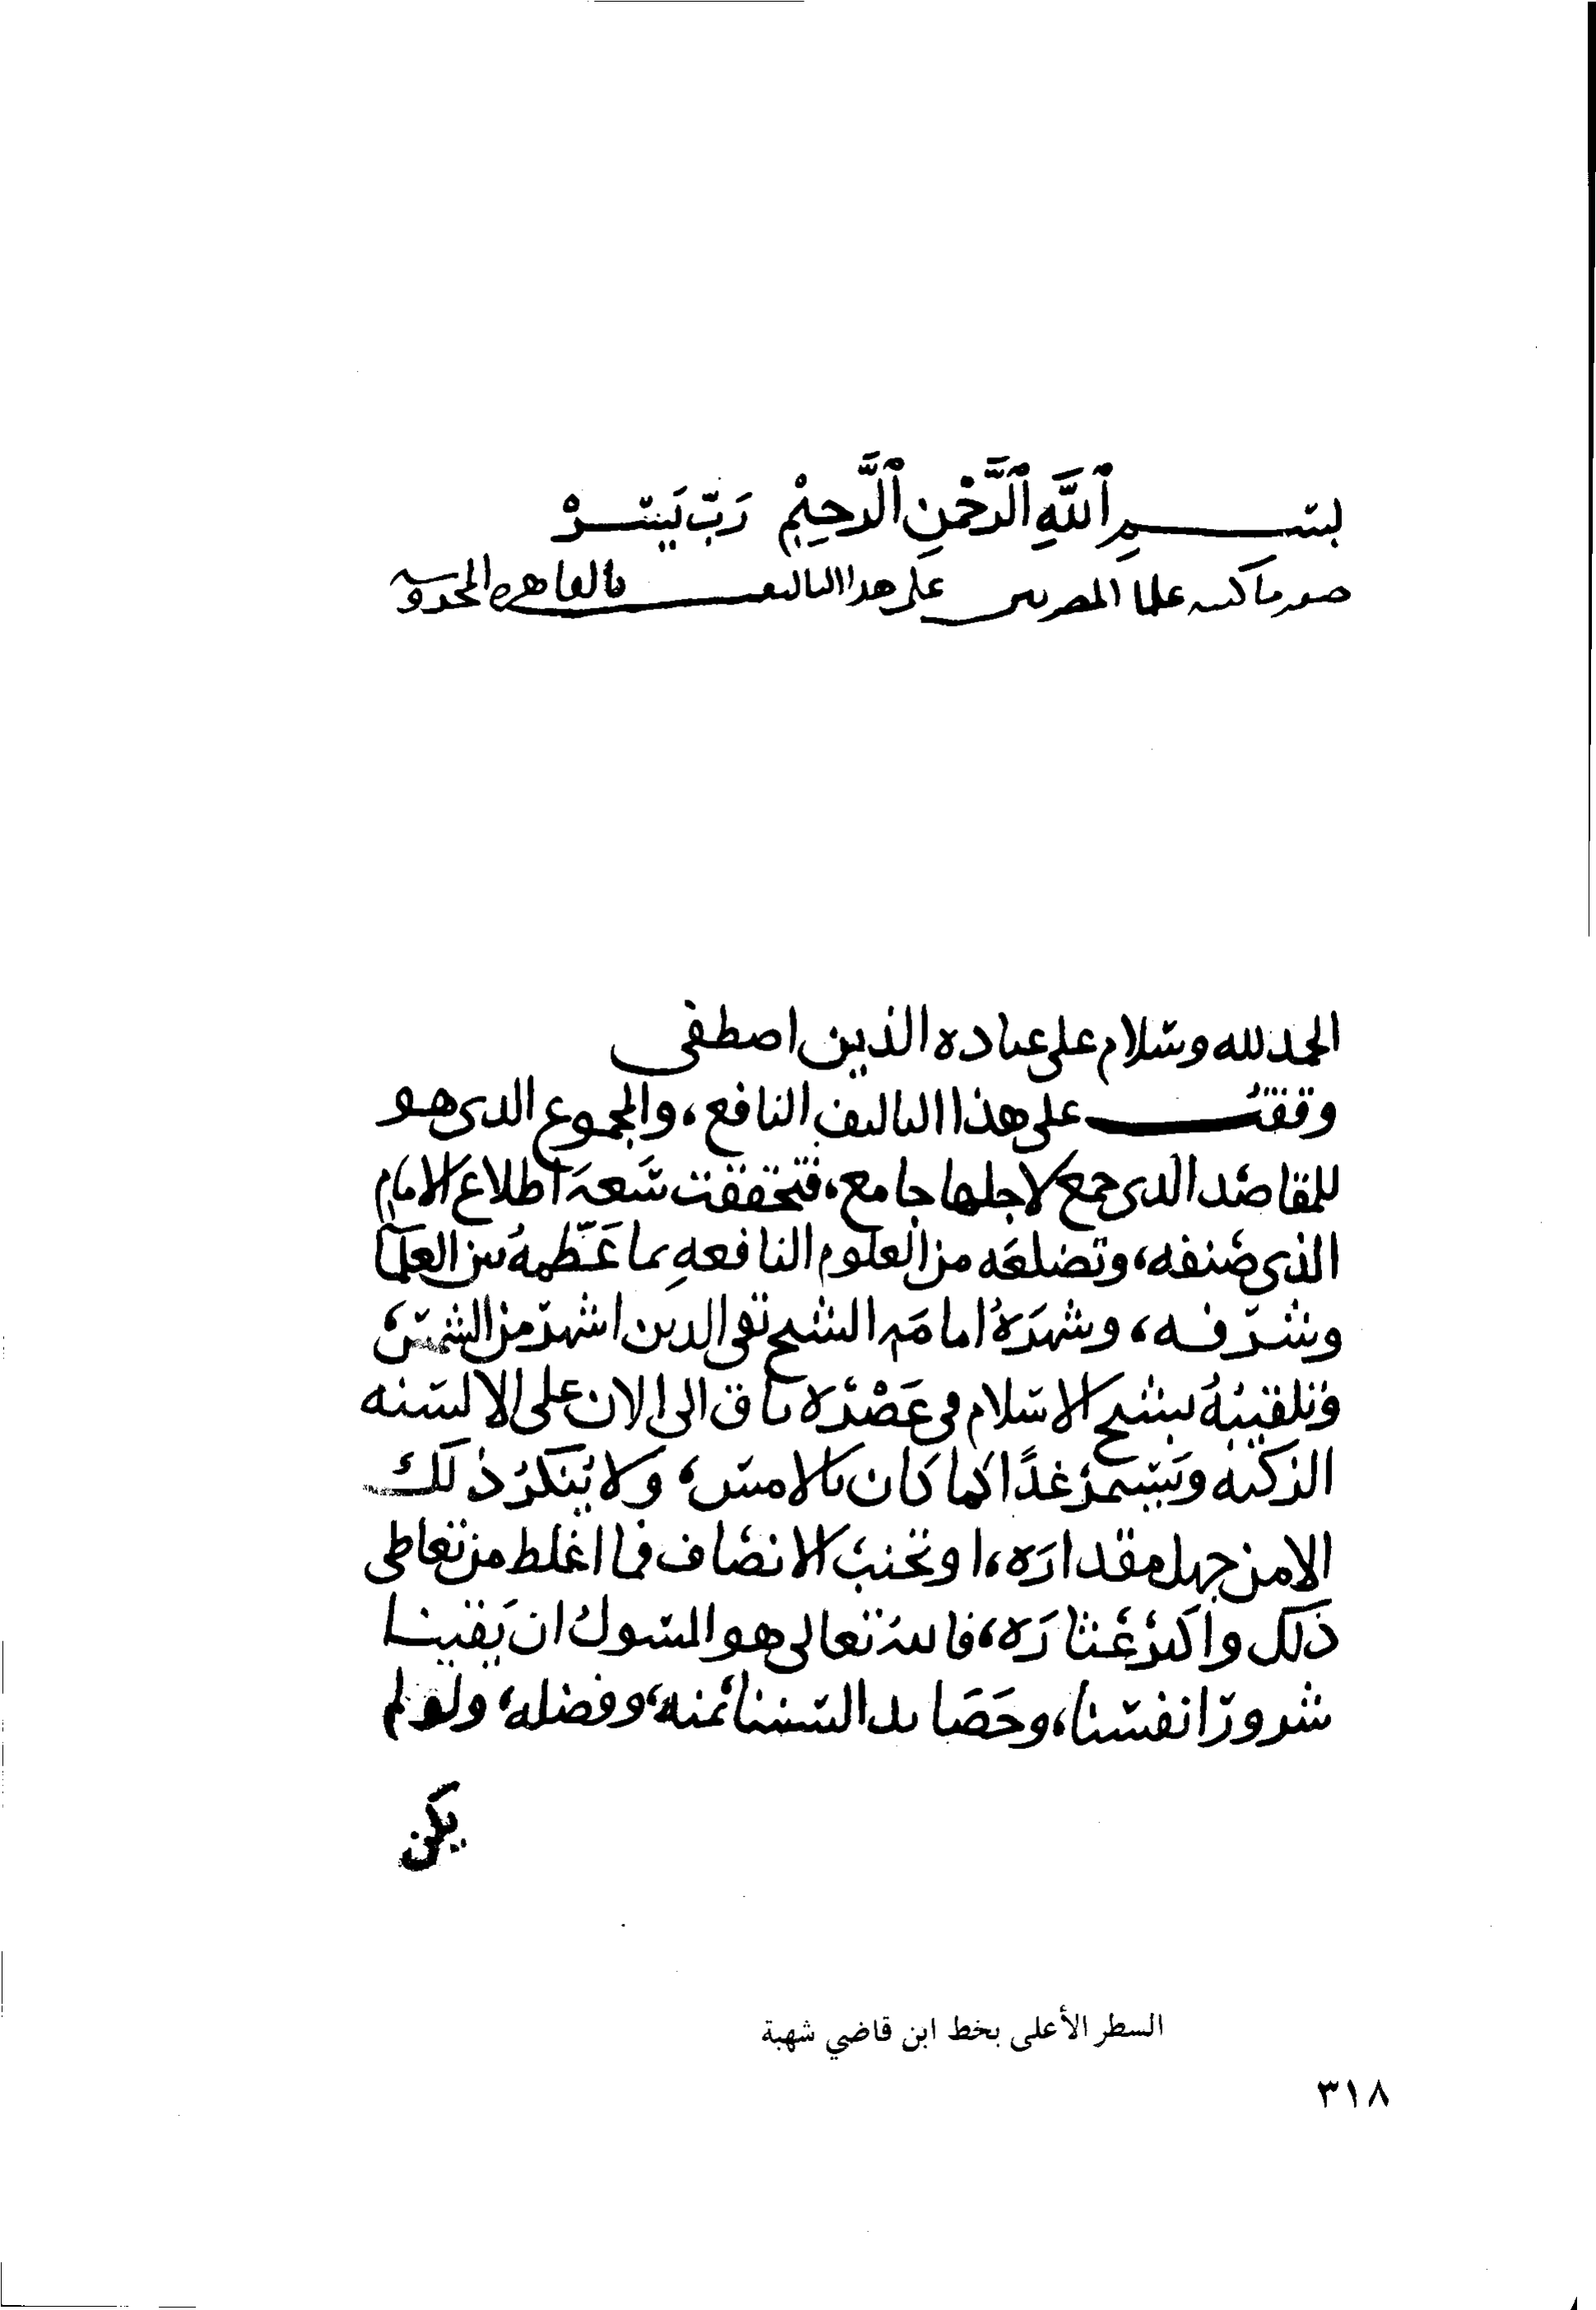 بسم ٱللَّهِ ٱلرَّحْمٰنِ ٱلرَّحِيْمِ رَبِّ يَسِّرْ
صوره ما كتبه علما المصريين على هذا التاليف بالقاهره المحروسه
الحمد لله وسلام على عباده الذين اصطفى
وقفتُ على هذا التاليف النافع، والمجموع الذي هو
للمقاصد الذي جمع لاجلها جامع، فتحققت سَعة اطلاع الامام
الذي صنفه، وتضلعَه من العلوم النافعه بما عَظّمهُ بين العلمآ
وشرّفه، وشهرَةُ امامَة الشيخ تقي الدين اشهرُ من الشمس،
وتلقيبُهُ بشيخ الاسلام في عَصْره باق الى الان على الالسنه
الزكيه ويَستمرُ غدًا كما كان بالامس، ولا يُنكرُ ذلك
الا من جهل مقدارَه، او تجنبَ الانصاف فما اغلط من تعاطى
ذلك واكثرَ عَثارَه، فاللهُ تعالى هو المسول ان يَقينا
شرورَ انفسنا، وحَصَايد السنتنا بمنه، وفضله، ولو لم
يكن
السطر الأعلى بخط ابن قاضي شهبة
٣١٨